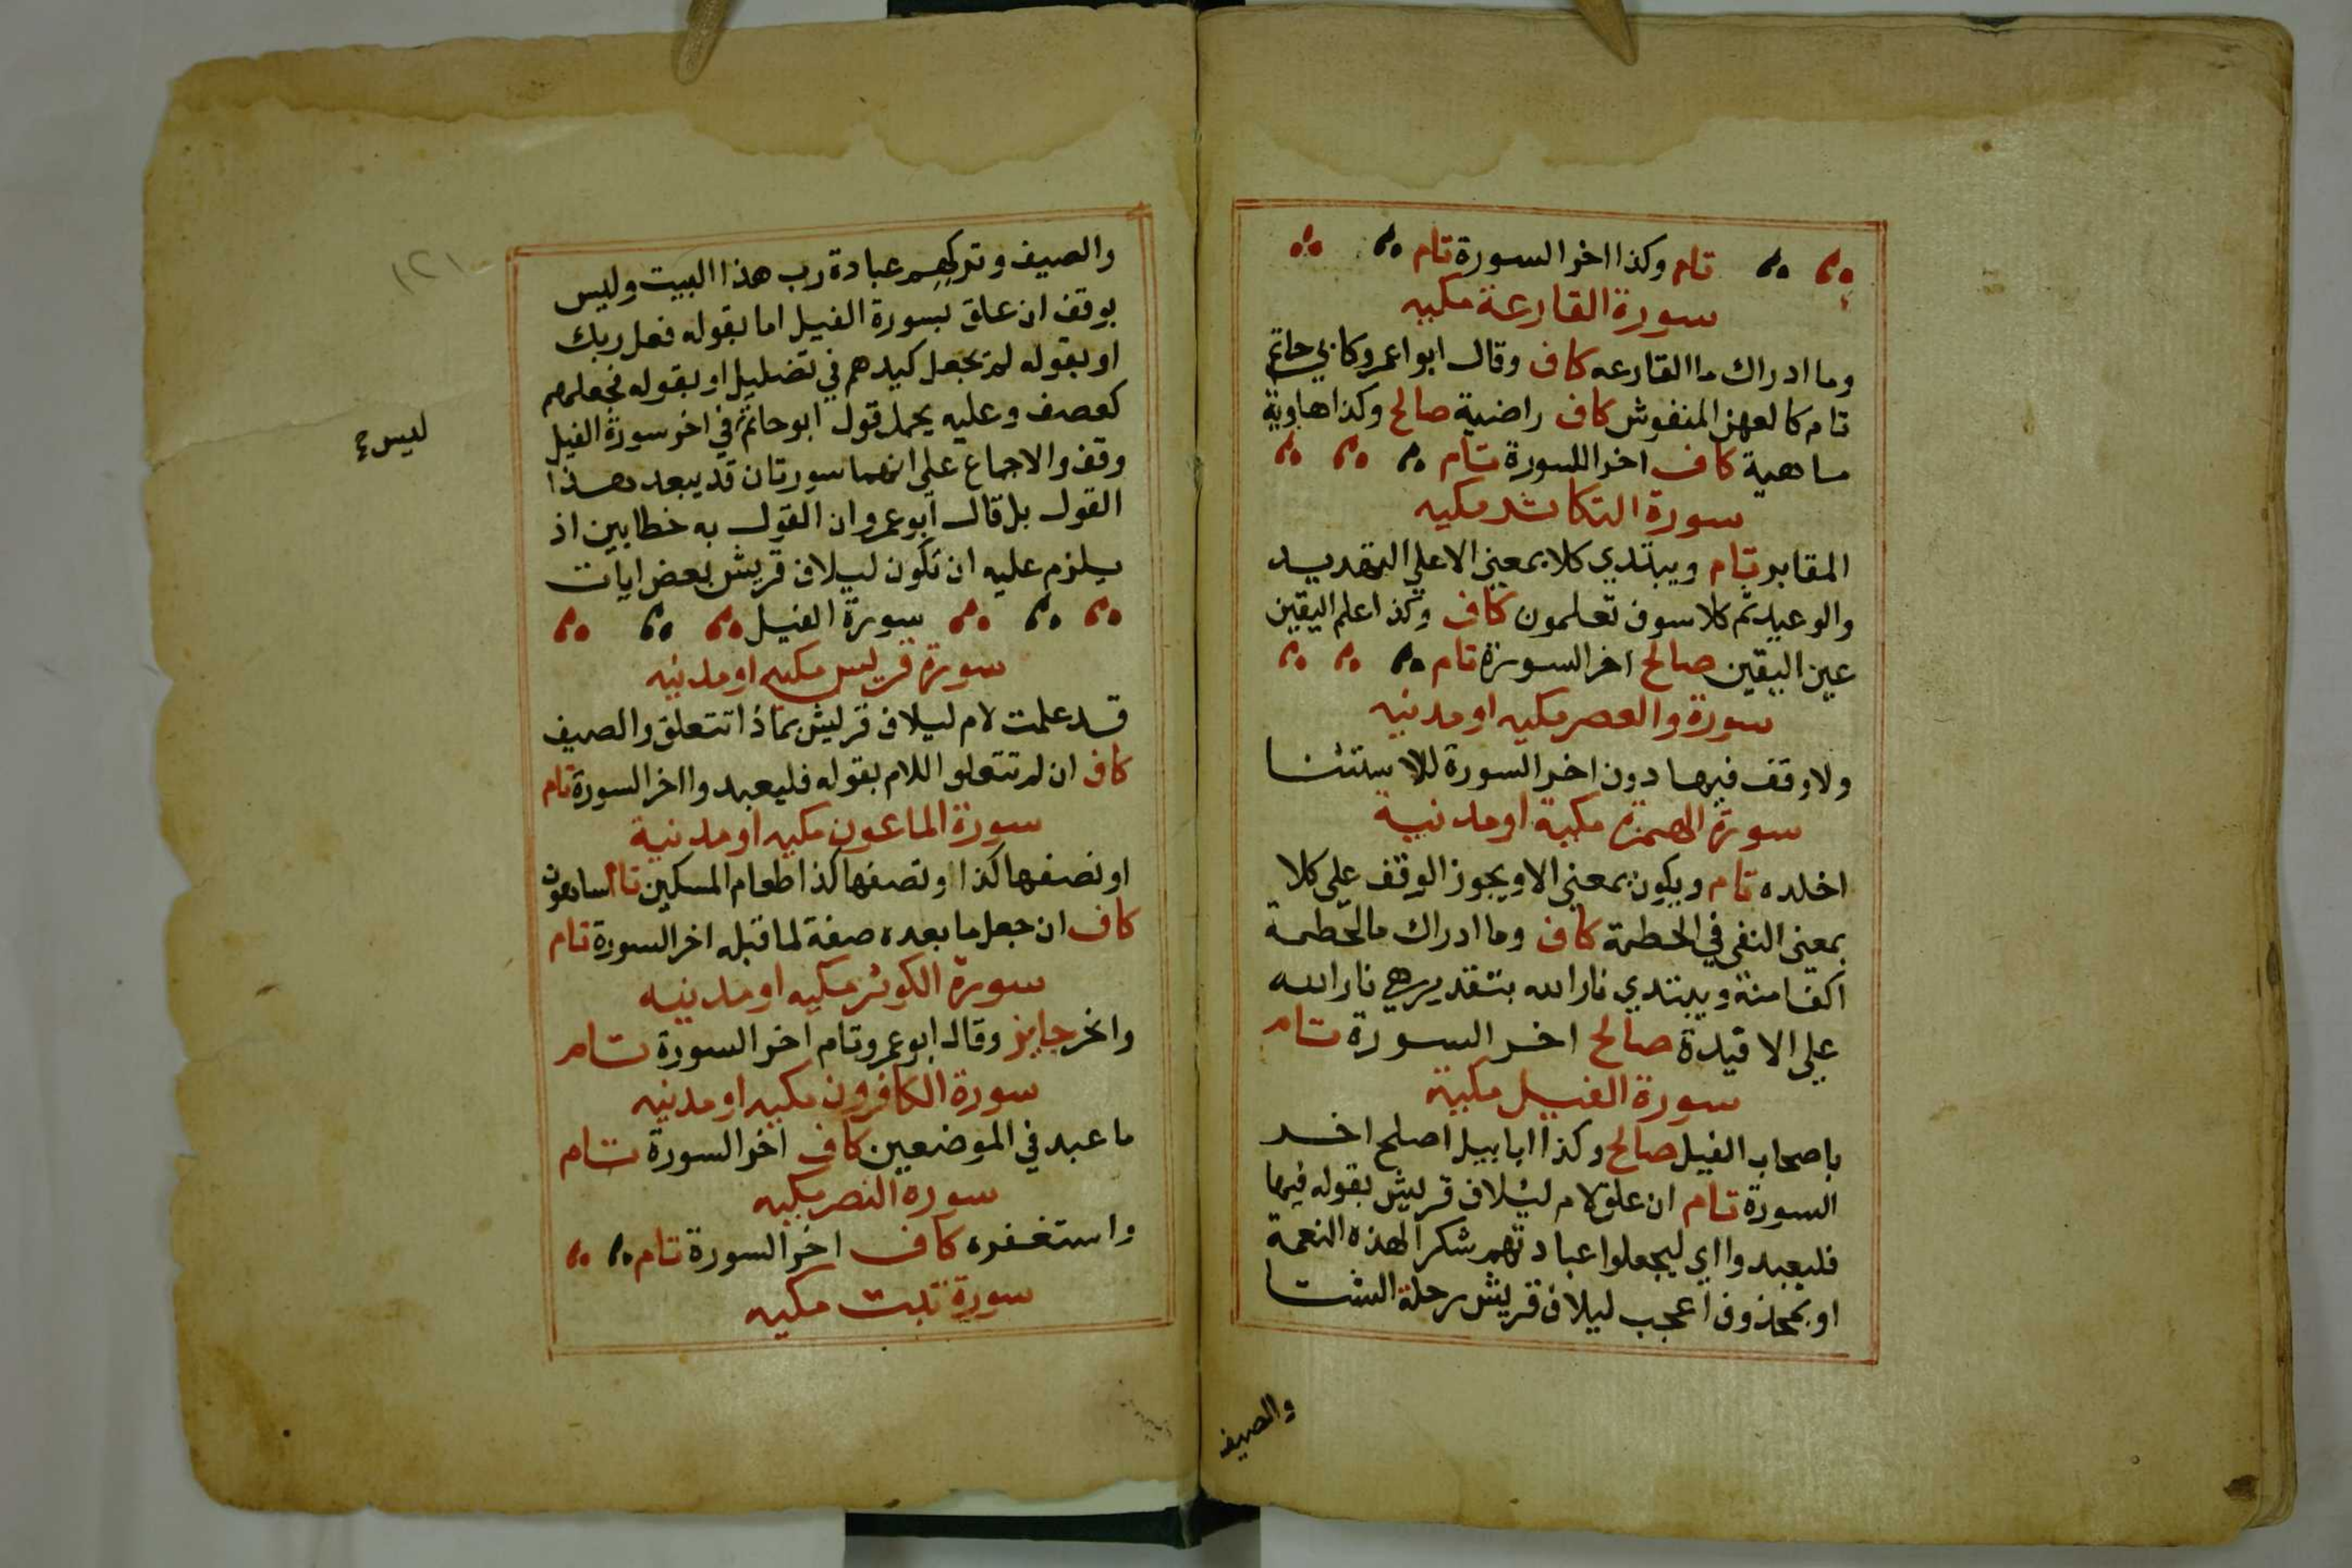 تام وكذا اخر السورة تام
سورة القارعة مكيه
وما ادراك ما القارعه كاف وقال ابوا عمرو كابي حاتم
تام كالعهن المنفوش كاف راضية صالح وكذا هاوية
ماهية كاف اخر اللسورة تام
سورة التكاثر مكيه
المقابر تام ويبتدي كلا بمعني الا علي التهديد
والوعيد ثم كلا سوف تعلمون كاف وكذا علم اليقين
عين اليقين صالح اخر السورة تام
سورة والعصر مكيه او مدنيه
ولا وقف فيها دون اخر السورة للاستثنا
سورة الهمزة مكية او مدنيية
اخلده تام ويكون بمعني الا ويجوز الوقف علي كلا
بمعني النفي في الحطمة كاف وما ادراك مالحطمة
اكفا منه ويبتدي نار الله بتقدير هي نار الله
علي الافيدة صالح اخر السورة تام
سورة الفييل مكية
باصحاب الفيل صالح وكذا ابابيل اصلح اخر
السورة تام ان علق لام ليلاف قريش بقوله فيها
فليعبدوا اي ليجعلوا عبادتهم شكرا لهذه النعمة
او بمحذوف اعجب ليلاف قريش رحلة الشتا
والصيف
والصيف وتركهم عبادة رب هذا البيت وليس
بوقف ان علق بسورة الفيل اما بقوله فعل ربك
او بقوله لم يجعل كيدهم في تضليل او بقوله فجعلهم
كعصف وعليه يحمل قول ابو حاتم في اخر سورة الفيل
ليس
وقف والاجماع علي انهما سورتان قد يبعد هذا
القول بل قال ابو عمرو ان القول به خطا بين اذ
يلزم عليه ان تكون ليلاف قريش بعض ايات
سورة الفيل
سورة قريس مكيه او مدنيه
قد علمت لام ليلاف قريش بماذا تتعلق والصيف
كاف ان لم تتعلق اللام بقوله فليعبدوا اخر السورة تام
سورة الماعون مكيه او مدنية
او نصفها كذا او نصفها كذا طعام المسكين تام ساهون
كاف ان جعل ما بعده صفة لما قبله اخر السورة تام
سورة الكوثر مكيه او مدنيه
وانحر جايز وقال ابو عمرو تام اخر السورة تام
سورة الكافرون مكيه او مدنيه
ما عبد في الموضعين كاف اخر السورة تام
سورة النصر مكيه
واستغفره كاف اخر السورة تام
سورة تبت مكيه
١٢١